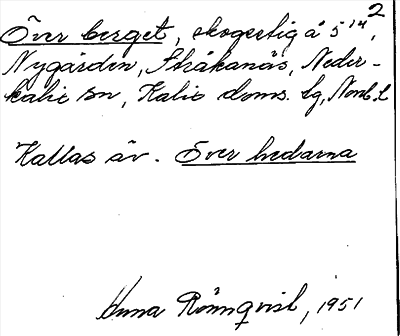 2
Över berget, skogsstig å 5 14,
Nygården, Stråkanäs, Neder-
kalix sn, Kalix doms. lg, Norrb. l.
Kallas äv. Över hedarna
Anna Rönnqvist, 1951